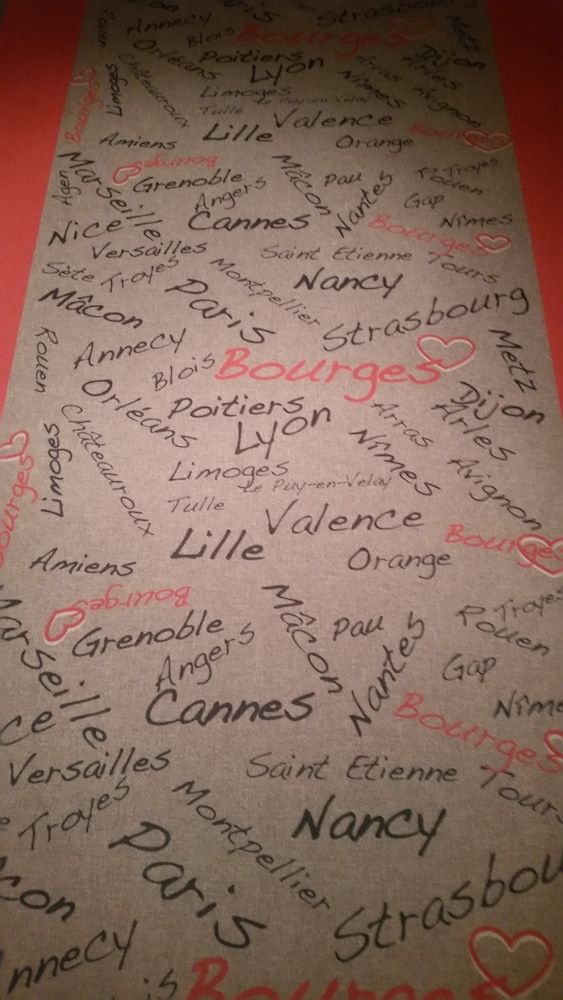 Annecy
Strasbourg
Metz
Rouen
Blois
Bourges
Orléans
Poitiers
Dijon
Arles
Lyon
Arras
Nîmes
Châteauroux
Limoges
Limoges
Le Puy-en-Velay
Avignon
Bourges
Tulle
Valence
Lille
Orange
Bourges
Amiens
Bourges
Marseille
Grenoble
Mâcon
Pau
Troyes
Rouen
Agen
Angers
Nantes
Gap
Nice
Cannes
Bourges
Nîmes
Versailles
Saint Etienne
Tours
Sète
Troyes
Montpellier
Nancy
Mâcon
Paris
Strasbourg
Annecy
Metz
Rouen
Blois
Bourges
Orléans
Poitiers
Dijon
Arles
Lyon
Arras
Nîmes
Châteauroux
Limoges
Limoges
Le Puy-en-Velay
Avignon
Bourges
Tulle
Valence
Lille
Orange
Bourges
Amiens
Bourges
Marseille
Grenoble
Mâcon
Pau
Troyes
Rouen
Angers
Nantes
Gap
ce
Cannes
Bourges
Nîme
Versailles
Saint Etienne
Tours
Troyes
Montpellier
Nancy
con
Paris
Strasbou
nnecy
is
Bourges